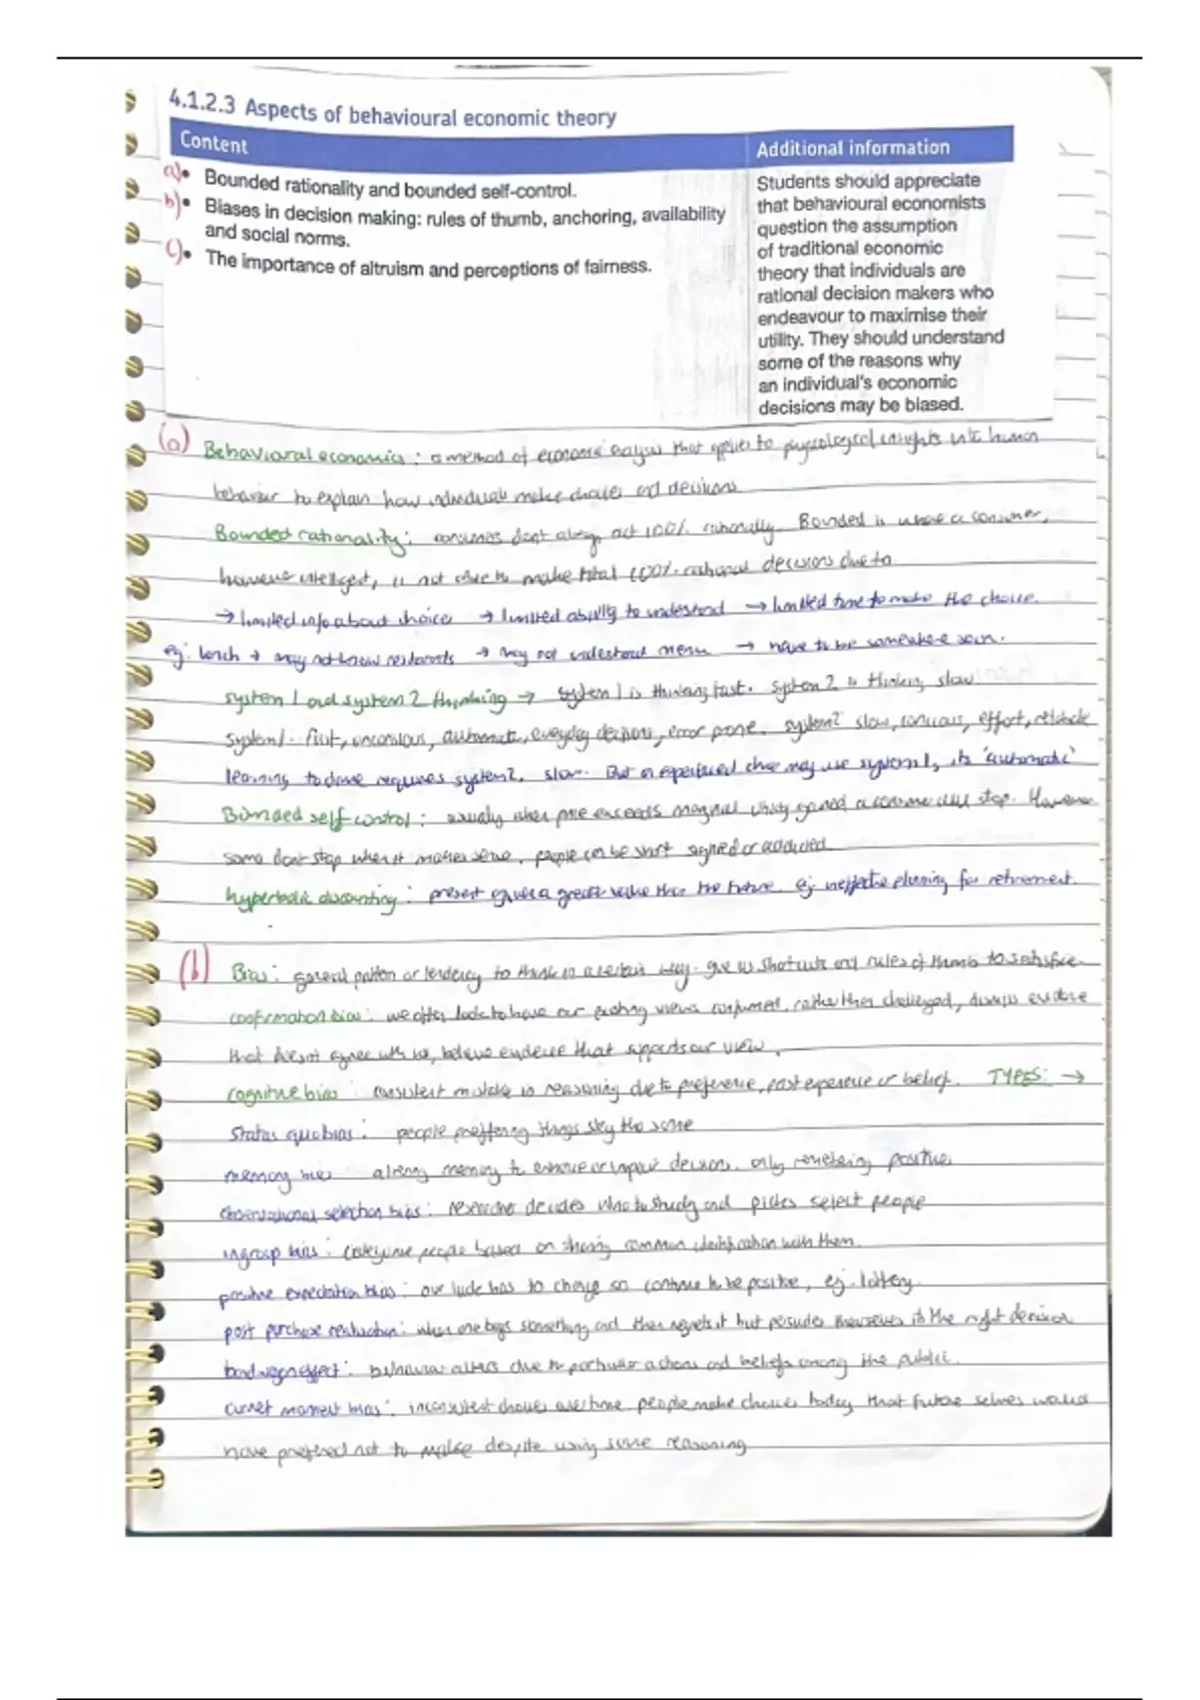 4.1.2.3 Aspects of behavioural economic theory
Content
Additional information
a) • Bounded rationality and bounded self-control.
b) • Biases in decision making: rules of thumb, anchoring, availability
and social norms.
c) • The importance of altruism and perceptions of fairness.
Students should appreciate
that behavioural economists
question the assumption
of traditional economic
theory that individuals are
rational decision makers who
endeavour to maximise their
utility. They should understand
some of the reasons why
an individual's economic
decisions may be biased.
(a) Behavioural economics : a method of economic analysis that applies to insights into human
behaviour to explain how individuals make choices and decisions
Bounded rationality : consumers dont always act 100% rationally. Bounded is where a consumer,
however intelligent, is not able to make total 100% rational decisions due to
→ limited info about choice → limited ability to understand → limited time to make the choice.
eg: lunch → may not know restaurants → may not understand menu → have to be somewhere soon.
system 1 and system 2 thinking → system 1 is thinking fast. System 2 is thinking slow.
System 1 : fast, unconscious, automatic, everyday decisions, error prone. system 2 slow, conscious, effort, reliable
learning to drive requires system 2, slow. But an experienced driver may use system 1, its 'automatic'
Bounded self control : usually when price exceeds marginal utility gained a consumer will stop. However
some dont stop when it makes sense, people can be short sighted or addicted
hyperbolic discounting : present given a greater value than the future. eg ineffective planning for retirement.
(b) Bias : general pattern or tendency to think in a certain way. give us shortcuts and rules of thumb to satisfice
confirmation bias : we often look to have our existing views confirmed, rather than challenged, dismiss evidence
that doesnt agree with us, believe evidence that supports our view.
cognitive bias : consistent mistake in reasoning due to preference, past experience or belief. TYPES: →
Status quo bias : people preffering things stay the same
memory bias : altering memory to enhance or impair decisions. only remembering positives
observational selection bias : researcher decides who to study and picks select people
ingroup bias : categorise people based on sharing common identification with them.
positive expectation bias : our luck has to change or continue to be positive, eg. lottery.
post purchase : when one buys something and then regrets it but persuades themselves its the right decision
bandwagon effect : behaviour alters due to particular actions and beliefs among the public.
current moment bias : inconsistent choices over time people make choices today that future selves would
have prefered not to make despite using same reasoning